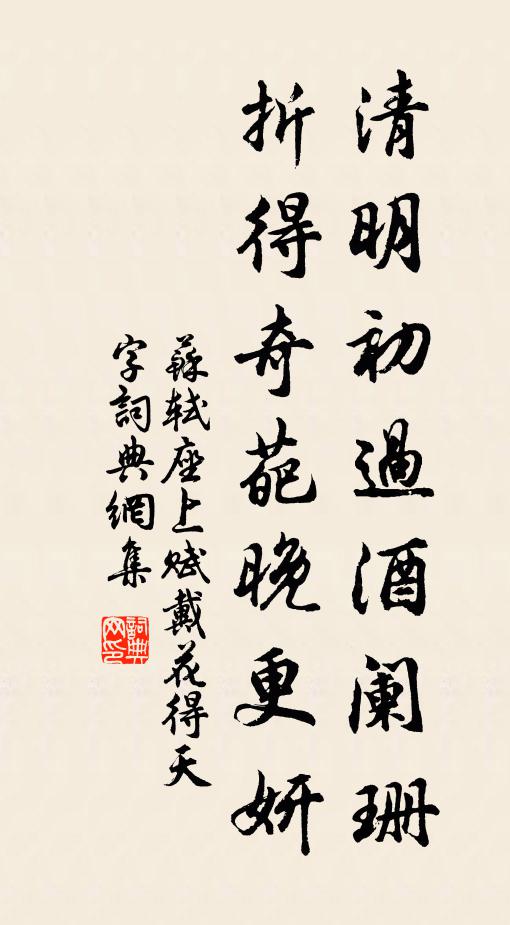 清明初過酒闌珊
折得奇葩晚更妍
蘇軾座上賦戴花得天
字詞典網集
詞典网印